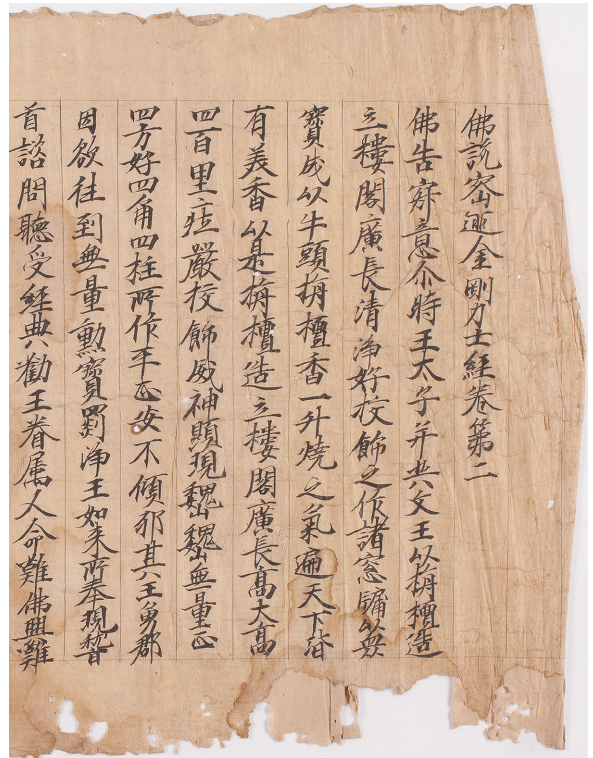 佛說密迹金剛力士經卷第二
佛告寂意尒時王太子并其父王以栴檀造
立樓閣廣長清淨好挍飾之作諸窓牖以眾
寶成以牛頭栴檀香一升燒之氣遍天下皆
有美香以是栴檀造立樓閣廣長高大高
四百里庄嚴挍飾威神顯現巍巍無量正
四方好四角四柱所作平正安不傾邪其王勇郡
因欲往到無量勳寶罰淨王如来所奉現稽
首諮問聽受經典勸王眷属人命難佛興難